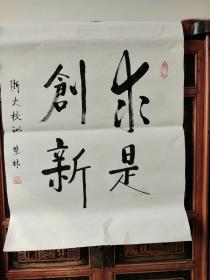 求是
創新
浙大校训 慧林